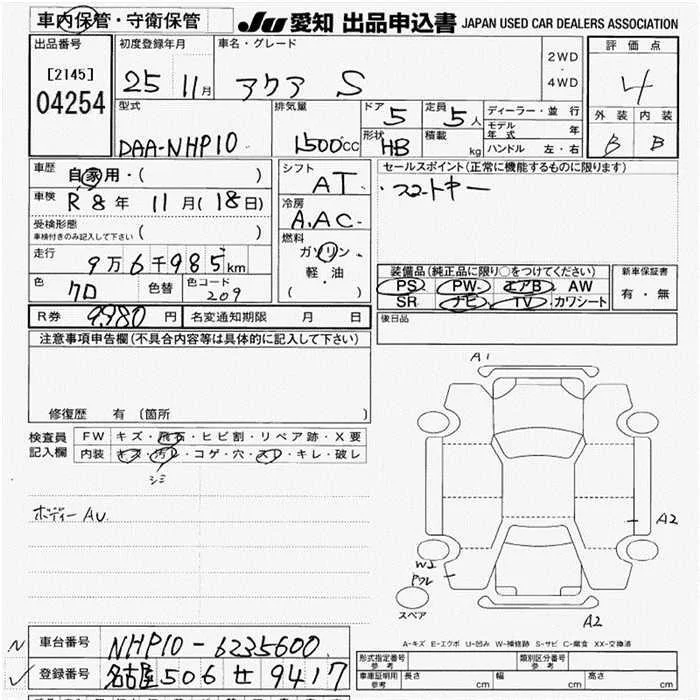 車内保管・守衛保管
JU 愛知 出品申込書 JAPAN USED CAR DEALERS ASSOCIATION
出品番号
[2145]
04254
初度登録年月
25 11月
車名・グレード
アクア S
2WD
・
4WD
評価点
4
外装 内装
B B
型式
DAA-NHP10
排気量
1500cc
ドア 5
定員 5人
形状 HB
積載 kg
ディーラー・並行
モデル年式 年
ハンドル 左・右
車歴 自家用・( )
車検 R8年 11月(18日)
受検形態
車検付きのみ記入して下さい ( )
走行
9万6千985km
色 クロ
色替
色コード 209
シフト
AT
冷房
A.AC
燃料
ガソリン
軽・油
( )
セールスポイント(正常に機能するものに限ります)
・スマートキー
装備品(純正品に限り○をつけてください)
PS PW エアB AW
SR ナビ TV カワシート
新車保証書
有・無
後日品
R券 9,980円
名変通知期限 月 日
注意事項申告欄(不具合内容等は具体的に記入して下さい)
修復歴 有(箇所 )
検査員記入欄
FW キズ・飛石・ヒビ割・リペア跡・X要
内装 キズ・汚れ・コゲ・穴・スレ・キレ・破レ
シミ
ボディー AU
A1
A2
W2
A2
スペア
A-キズ E-エクボ U-凹み W-補修跡 S-サビ C-腐食 XX-交換済
車台番号 NHP10-6235600
登録番号 名古屋 506 せ 9417
形式指定番号
参考
類別区分番号
参考
車庫証明用
参考
長さ cm
幅 cm
高さ cm